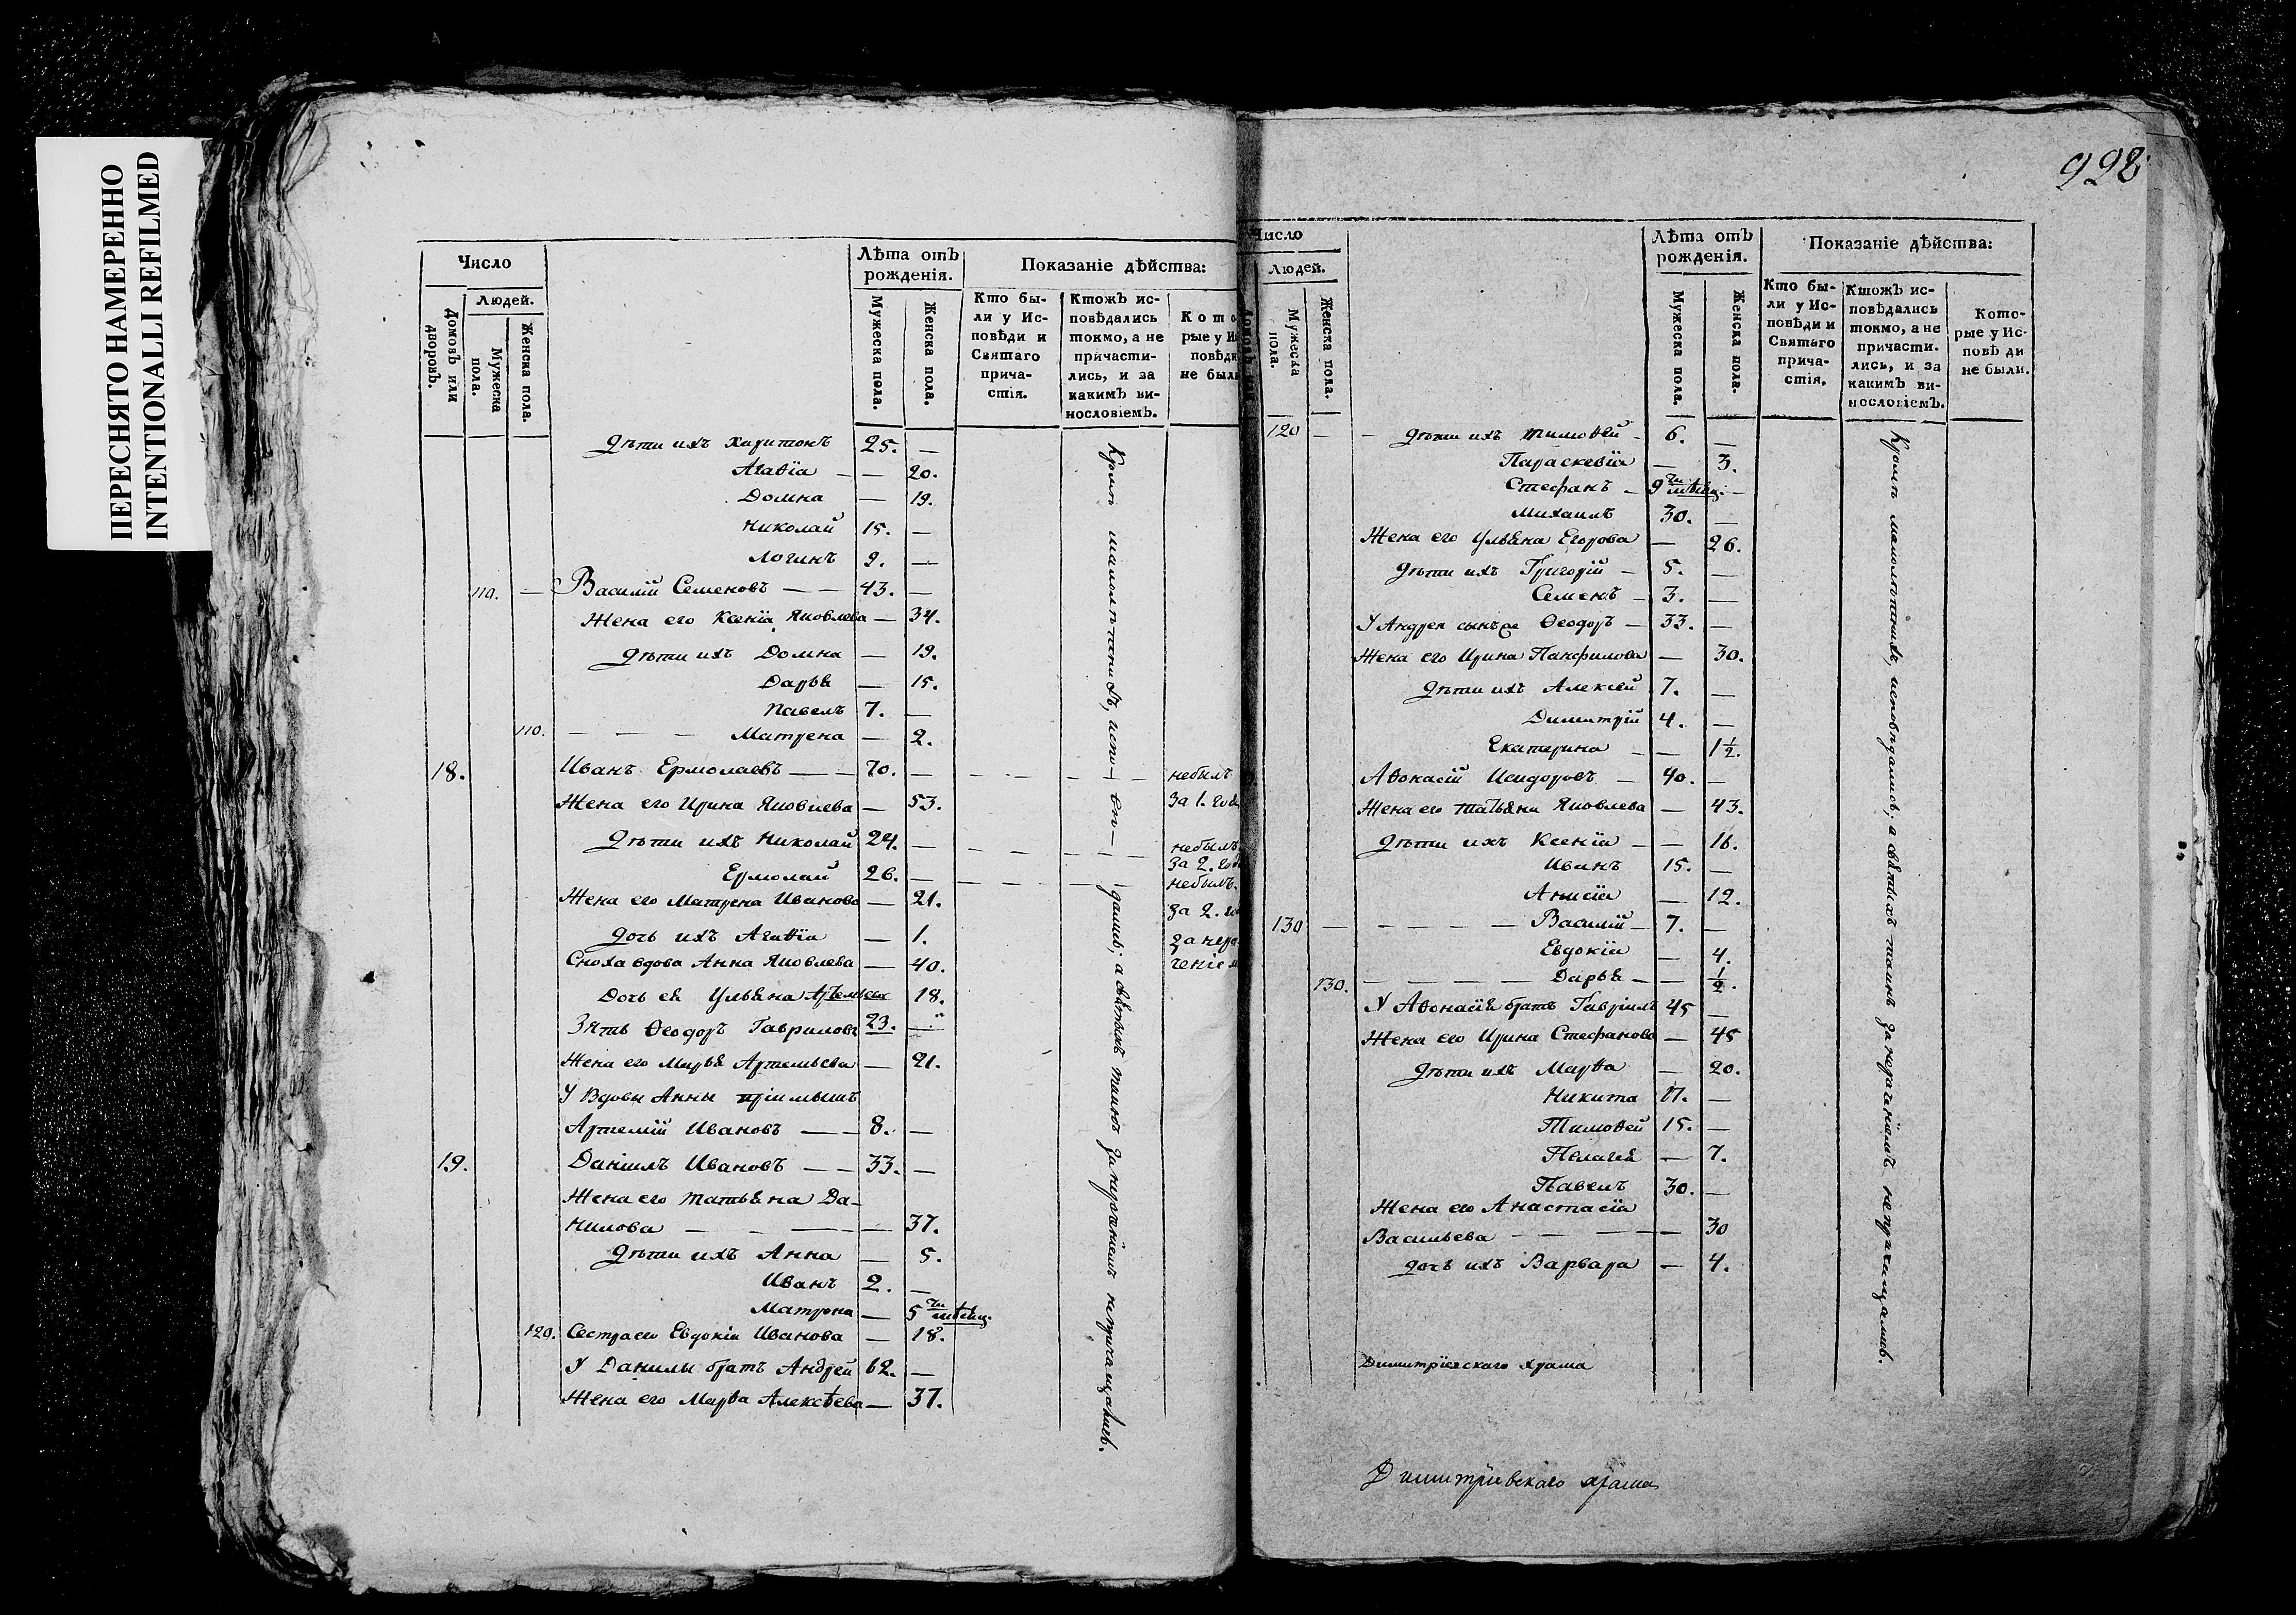 ПЕРЕСНЯТО НАМЕРЕННО
INTENTIONALLI REFILMED
Число
Людей.
Домовъ или дворовъ.
Мужеска пола.
Женска пола.
Лѣта отъ рожденія.
Мужеска пола.
Женска пола.
Показаніе дѣйства:
Кто бы-
ли у Ис-
повѣди и
Святаго
прича-
стія.
Ктожъ ис-
повѣдались
токмо, а не
причасти-
лись, и за
какимъ ви-
нословіемъ.
Кото
рые у Ис
повѣди
не были
дѣти ихъ Харитонъ 25. —
Агаѳіа — — 20.
Домна — 19.
Николай 15. —
Логинъ 2. —
110. — Василій Семеновъ — — 43. —
Жена его Ксеніа Яковлева — 34.
дѣти ихъ Домна — 19.
Дарья — 15.
Павелъ 7. —
110. — — — Матрена — 2.
18. Иванъ Ермолаевъ — — 70. — — — — — небылъ
Жена его Ирина Яковлева — 53. За 1. годъ
дѣти ихъ Николай 24. — — — — — небылъ
За 2. годъ
Ермолай 26. — — — — — небылъ.
Жена его Матрена Иванова — 21. За 2. год
дочь ихъ Агаѳіа — 1. За нера-
Сноха вдова Анна Яковлева — 40. ченіем
Дочь ея Ульяна Артемьева 18.
Зять Ѳеодоръ Гавриловъ 23. —
Жена его Марья Артемьева — 21.
У Вдовы Анны пріимышъ
Артемій Ивановъ — — 8. —
19. Даніилъ Ивановъ — — 33. —
Жена его Татьяна Да-
нилова — — — — 37.
дѣти ихъ Анна — 5.
Иванъ 2. —
Матрона — 5 ти мѣсяц.
120. Сестра его Евдокіа Иванова — 18.
У Данилы братъ Андрей 62. —
Жена его Марѳа Алексѣева — 37.
Кромѣ малолѣтнихъ, испо— вѣ— дались; а святыхъ таинъ за нераченіемъ непричащались.
998
Число
Людей.
Мужеска пола.
Женска пола.
Лѣта отъ рожденія.
Мужеска пола.
Женска пола.
Показаніе дѣйства:
Кто бы-
ли у Ис-
повѣди и
Святаго
прича-
стія.
Ктожъ ис-
повѣдались
токмо, а не
причасти-
лись, и за
какимъ ви-
нословіемъ.
Кото-
рые у Ис-
повѣди
не были.
120 — — дѣти ихъ Тимоѳей — 6. —
Параскевіа — 3.
Стефанъ — 9 ти мѣсяц. —
Михаилъ 30. —
Жена его Ульяна Егорова — 26.
дѣти ихъ Григорій — 5. —
Семенъ — 3. —
У Андрея сынъ Ѳеодоръ — 33. —
Жена его Ирина Панфилова — 30.
дѣти ихъ Алексей 7. —
Димитрій 4. —
Екатерина — — 1½.
Аѳонасій Исидоровъ — 40. —
Жена его Татьяна Яковлева — 43.
дѣти ихъ Ксеніа — — 16.
Иванъ 15. —
Анисіа — 12.
130 — — — — — Василій — 7. —
Евдокіа — 4.
130. — — — — Дарья — — ½.
У Аѳонасія братъ Гавріилъ 45 —
Жена его Ирина Стефанова — 45
дѣти ихъ Марѳа — 20.
Никита 17. —
Тимоѳей 15. —
Пелагея — 7.
Павелъ 30. —
Жена его Анастасіа
Васильева — — — — 30
дочь ихъ Варвара — 4.
Кромѣ малолѣтнихъ, исповѣдались; а святыхъ таинъ за нераченіемъ непричащались.
Димитріевскаго храма
Димитріевскаго храма